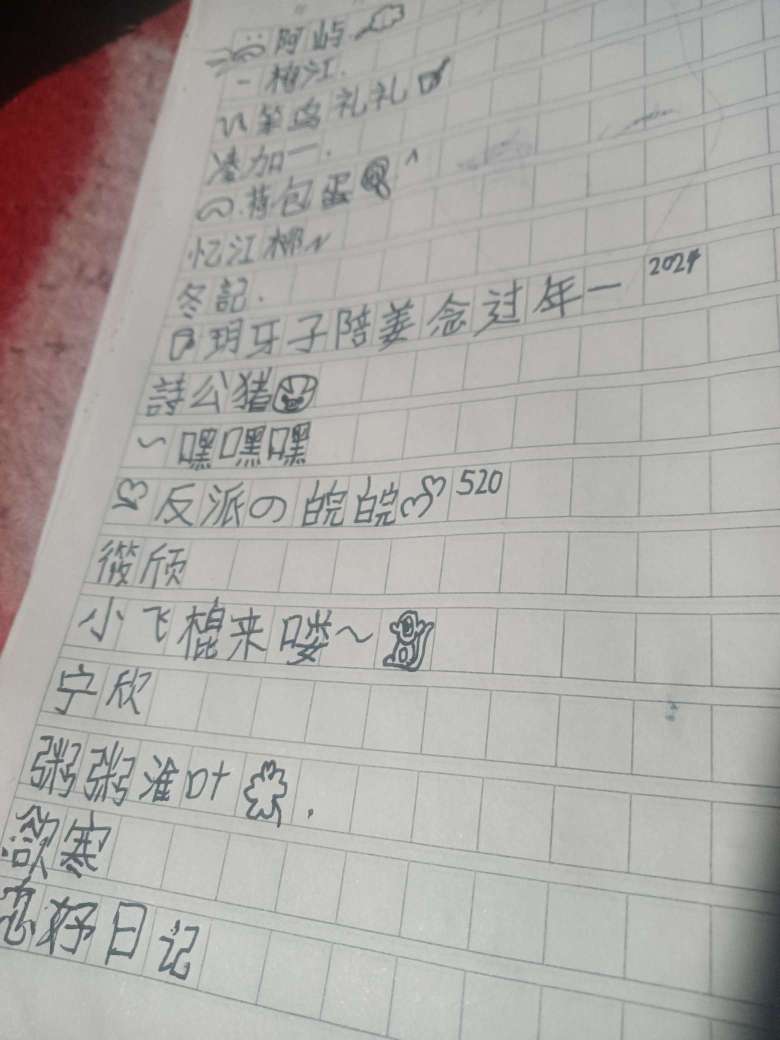 阿屿
一梅江.
笨鸡礼礼
凑加一.
背包蛋
忆江柳~
冬記.
玥牙子陪姜念过年一 2024
詩公猪
~嘿嘿嘿
反派の皖皖 520
筱颀
小飞棍来喽~
宁欣
粥粥淮叶.
歙寒
恋好日记